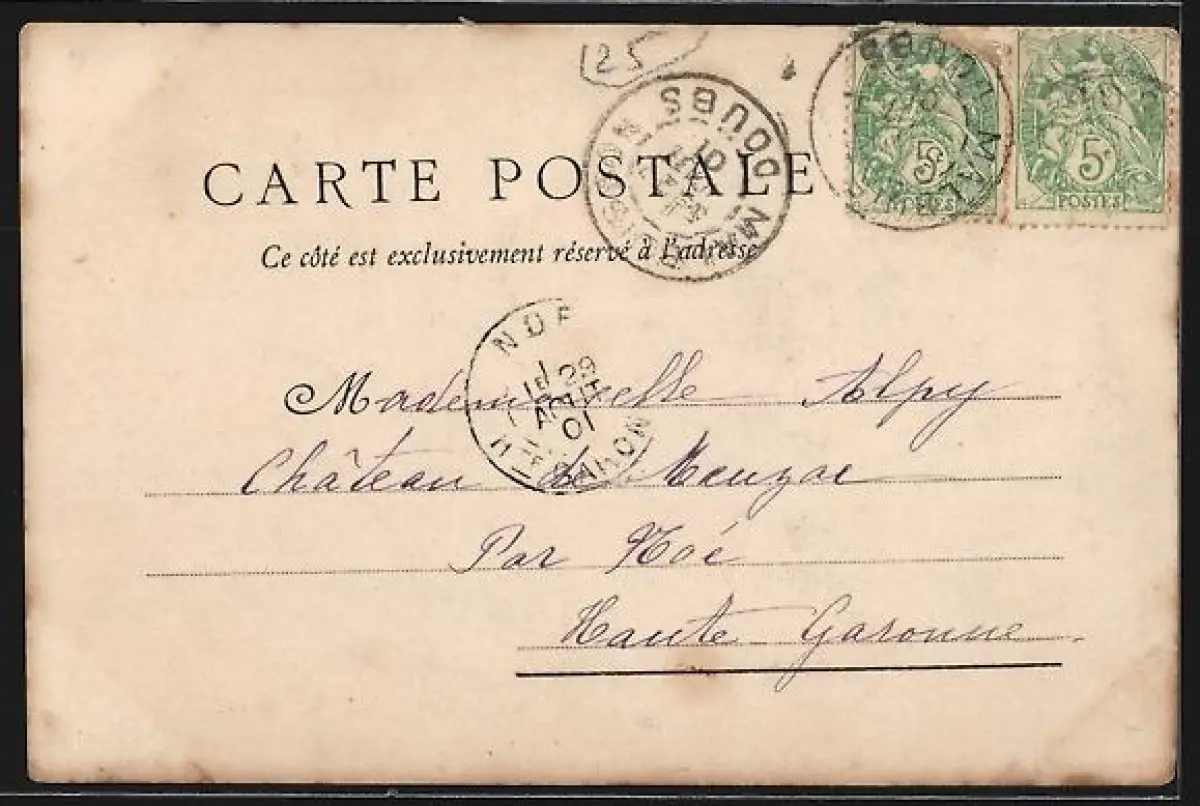 125
DOUBS
01
DOUBS
5c 5c
POSTES POSTES
CARTE POSTALE
Ce côté est exclusivement réservé à l'adresse
NOÉ
29
AOUT
01
GARONNE
Mademoiselle Alpy
Château de Mauzac
Par Noé
Haute Garonne